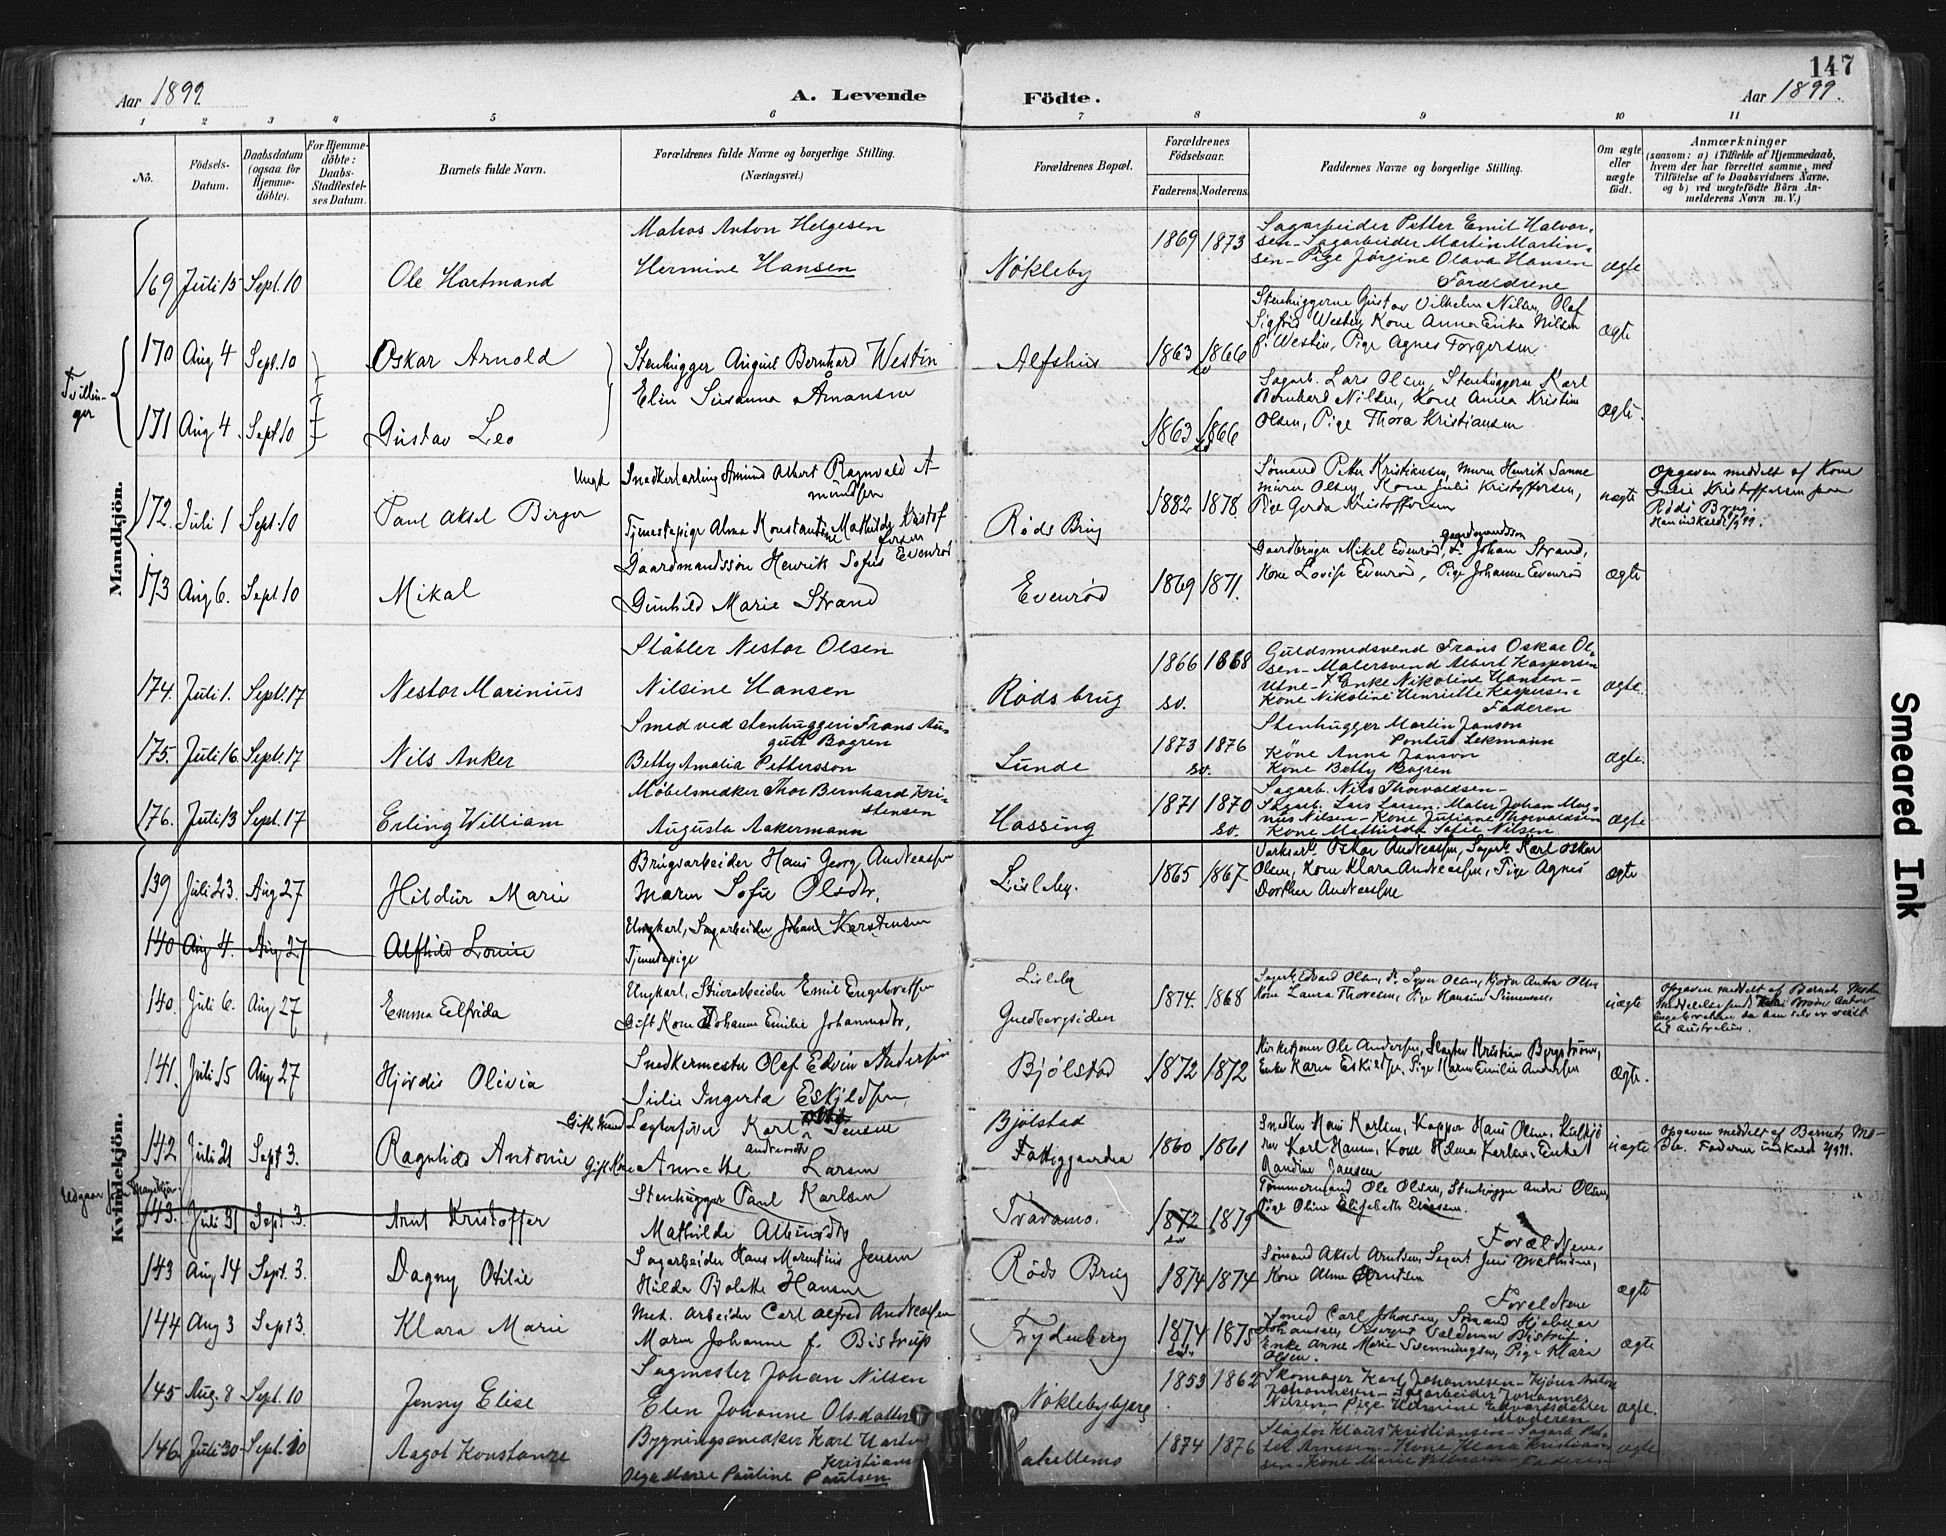 147
Aar 1899
A. Levende Födte.
Aar 1899.
1 2 3 4 5 6 7 8 9 10 11
No.
Födsels-Datum.
Daabsdatum (ogsaa for Hjemme-döbte).
For Hjemme-döbte: Daabs-Stadfæstel-ses Datum.
Barnets fulde Navn.
Forældrenes fulde Navne og borgerlige Stilling.
(Næringsvei.)
Forældrenes Bopæl.
Forældrenes Födselsaar.
Faderens. Moderens.
Faddernes Navne og borgerlige Stilling.
Om ægte eller uægte födt.
Anmærkninger
(saasom: a) i Tilfælde af Hjemmedaab,
hvem der har forrettet samme, med
Tilföielse af to Daabsvidners Navne,
og b) ved uægtefödte Börn An-
melderens Navn m. V.)
Mandkjön.
Matros Anton Helgesen
169 Juli 15 Sept. 10 Ole Hartmand Hermine Hansen Nökleby 1869 1873
Sagarbeider Petter Emil Halvor-
sen - Sagarbeider Martin Martin-
sen - Pige Jörgine Olava Hansen
Forældrene
ægte
Tvillin-
ger
170 Aug 4 Sept. 10 Oskar Arnold Stenhugger August Bernhard Westin Alfshus 1863 1866
Elin Susanna Åmansen
Stenhuggerne Gustav Vilhelm Nilsen, Olaf
Sigfrid Westin, Kone Anna Erika Nilsen
f. Westin, Pige Agnes Torgersen
ægte
171 Aug 4. Sept 10 Gustav Leo 1863 1866
Sagarb. Lars Olsen, Stenhuggerne Karl
Bernhard Nilsen, Kone Anna Kristin
Olsen, Pige Thora Kristiansen
ægte.
172. Juli 1 Sept. 10 Paul Aksel Birger
Ungk Snedkerlærling Amund Albert Ragnvald A-
mundsen
Tjenestepige Alma Konstantine Mathilde Kristof
fersen
Röds Brug 1882 1878.
Sömand Petter Kristiansen, Murer Henrik Sanne
Olsen, Kone Julie Kristoffersen,
Pige Gerda Kristoffersen
uægte
Opgaven meddelt af Kone
Julie Kristoffersen
Röds Brug.
173 Aug 6. Sept 10 Mikal
Gaardmandssön Henrik Sofus Evenröd
Gunhild Marie Strand
Evenröd 1869 1871.
Gaardbruger Mikel Evenröd, Johan Strand,
Kone Lovise Evenröd, Pige Johanne Evenröd
ægte
174. Juli 1. Sept. 17 Nestor Marinius
Stabler Nestor Olsen
Nilsine Hansen
Röds brug 1866 1868
sv.
Guldsmedsvend Frans Oskar Ol-
sen - Malersvend Albert Kaspersen
Utne - Enke Nikoline Hansen -
Kone Nikoline Henriette Kaspersen
Faderen
ægte.
175. Juli 16. Sept. 17 Nils Anker
Smed ved stenhuggeri Frans Au-
gust Bogren
Betty Amalia Pettersson
Lunde 1873 1876
sv.
Stenhugger Martin Janson
Pontus Lekmann
Kone Anna Janson
Kone Betty Bogren
ægte.
176. Juli 13 Sept. 17 Erling William
Möbelsnedker Thor Bernhard Kri-
stensen
Augusta Aakermann
Hassing 1871 1870
sv.
Sagarb. Nils Thorvaldsen -
Sagarb. Lars Larsen. Maler Johan Mag-
nus Nilsen - Kone Juliane Thorvaldsen
Kone Mathilde Sofie Nilsen
ægte
Kvindekjön.
139 Juli 23. Aug 27 Hildur Marie
Brugsarbeider Hans Georg Andreassen
Maren Sofie Olsdtr.
Lisleby. 1865 1867
Oskar Andreassen, Sagarb. Karl Oskar
Olsen, Kone Klara Andreassen, Pige Agnes
Dorthea Andreassen
ægte
140 Aug 4. Aug 27 Alfhild Lovise
Ungkarl, Sagarbeider Johan Karstensen
Tjenstepige
140. Juli 6. Aug 27 Emma Elfrida
Ungkarl, Stuerarbeider Emil Engebretsen
Gift Kone Johanne Emilie Johannesdtr.
Lisleby
Guldbergsiden
1874. 1868
Sagarb. Edvard Olsen, Syver Olsen, Björn Anton Olsen
Kone Laura Thoresen, Pige Hansine Simensen
uægte
Opgaven meddelt af Barnets Moder
til Australien.
141. Juli 15 Aug 27 Hjördis Olivia
Snedkermester Olaf Edvin Andersen
Julie Ingerta Eskildsen
Bjölstad 1872 1872
Kirketjener Ole Andersen, Slagter Kristian Bergström,
Enke Karen Eskildsen, Pige Maren Emilie Andersen
ægte.
142 Juli 21 Sept 3. Ragnhild Antonie
Gift Mand Lægterfører Karl Jensen
Gift Kone Annette Larsen
Bjölstad
Fattiggaarden
1860 1861
Snedker Hans Karlsen, Kapper Hans Olsen,
Karl Hansen, Kone Helma Karlsen, Enke
Randine Jansen
uægte
Opgaven meddelt af Barnets Mo-
der. Faderen indkaldt
143. Juli 31 Sept. 3. Arnt Kristoffer
Stenhugger Paul Karlsen
Mathilde
Travamo. 1872 1879
sv
Tömmermand Ole Olsen, Stenhugger Andr. Olsen,
Pige Oline Elisabeth
Forældrene
143 Aug 14 Sept. 3. Dagny Otilie
Sagarbeider Hans Marentius Jensen
Hilda Bolette Hansen
Röds Brug 1874 1874
Sömand Aksel Arntsen, Sagarb. Jens Mathisen,
Kone Alma Arntsen
Forældrene
ægte
144 Aug 3 Sept 3. Klara Marie
Mek. arbeider Carl Alfred Andreassen
Maren Johanne f. Bistrup
Frydenberg 1874 1875
Smed Carl Johansen, Sömand Hjalmar
Johansen, Valdemar Bistrup.
Enke Anne Marie Svenningsen, Pige Klara
Olsen.
ægte
145 Aug. 8 Sept. 10 Jenny Elise
Sagmester Johan Nilsen
Elen Johanne Olsdatter
Nöklebybjerg 1853 1862
Skomager Karl Johannesen - Kjörer Anton
Johannesen - Sagarbeider Johannes
Nilsen - Pige Helmine Edvardsdatter
Moderen
ægte.
146 Juli 30 Sept. 10 Aagot Konstanse
Bygningssnedker Karl Martin
Kristians
Olga Marie Pauline Paulsen
1874 1876
Slagter Klaus Kristiansen - Sagarb. Pet-
ter Arnesen - Kone Klara Kristian-
sen - Kone Marie Pettersen - Faderen
ægte
Smeared Ink